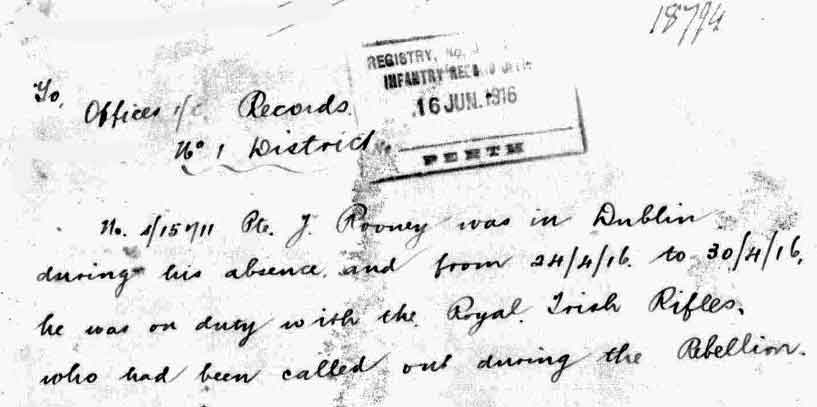 18794
REGISTRY, No.
INFANTRY RECORD
16 JUN. 1916
PERTH
To,
Officer i/c Records.
No 1 District.
No. s/15711 Pte. J. Rooney was in Dublin
during his absence. and from 24/4/16. to 30/4/16,
he was on duty with the. Royal. Irish Rifles.
who had been called out during the Rebellion.